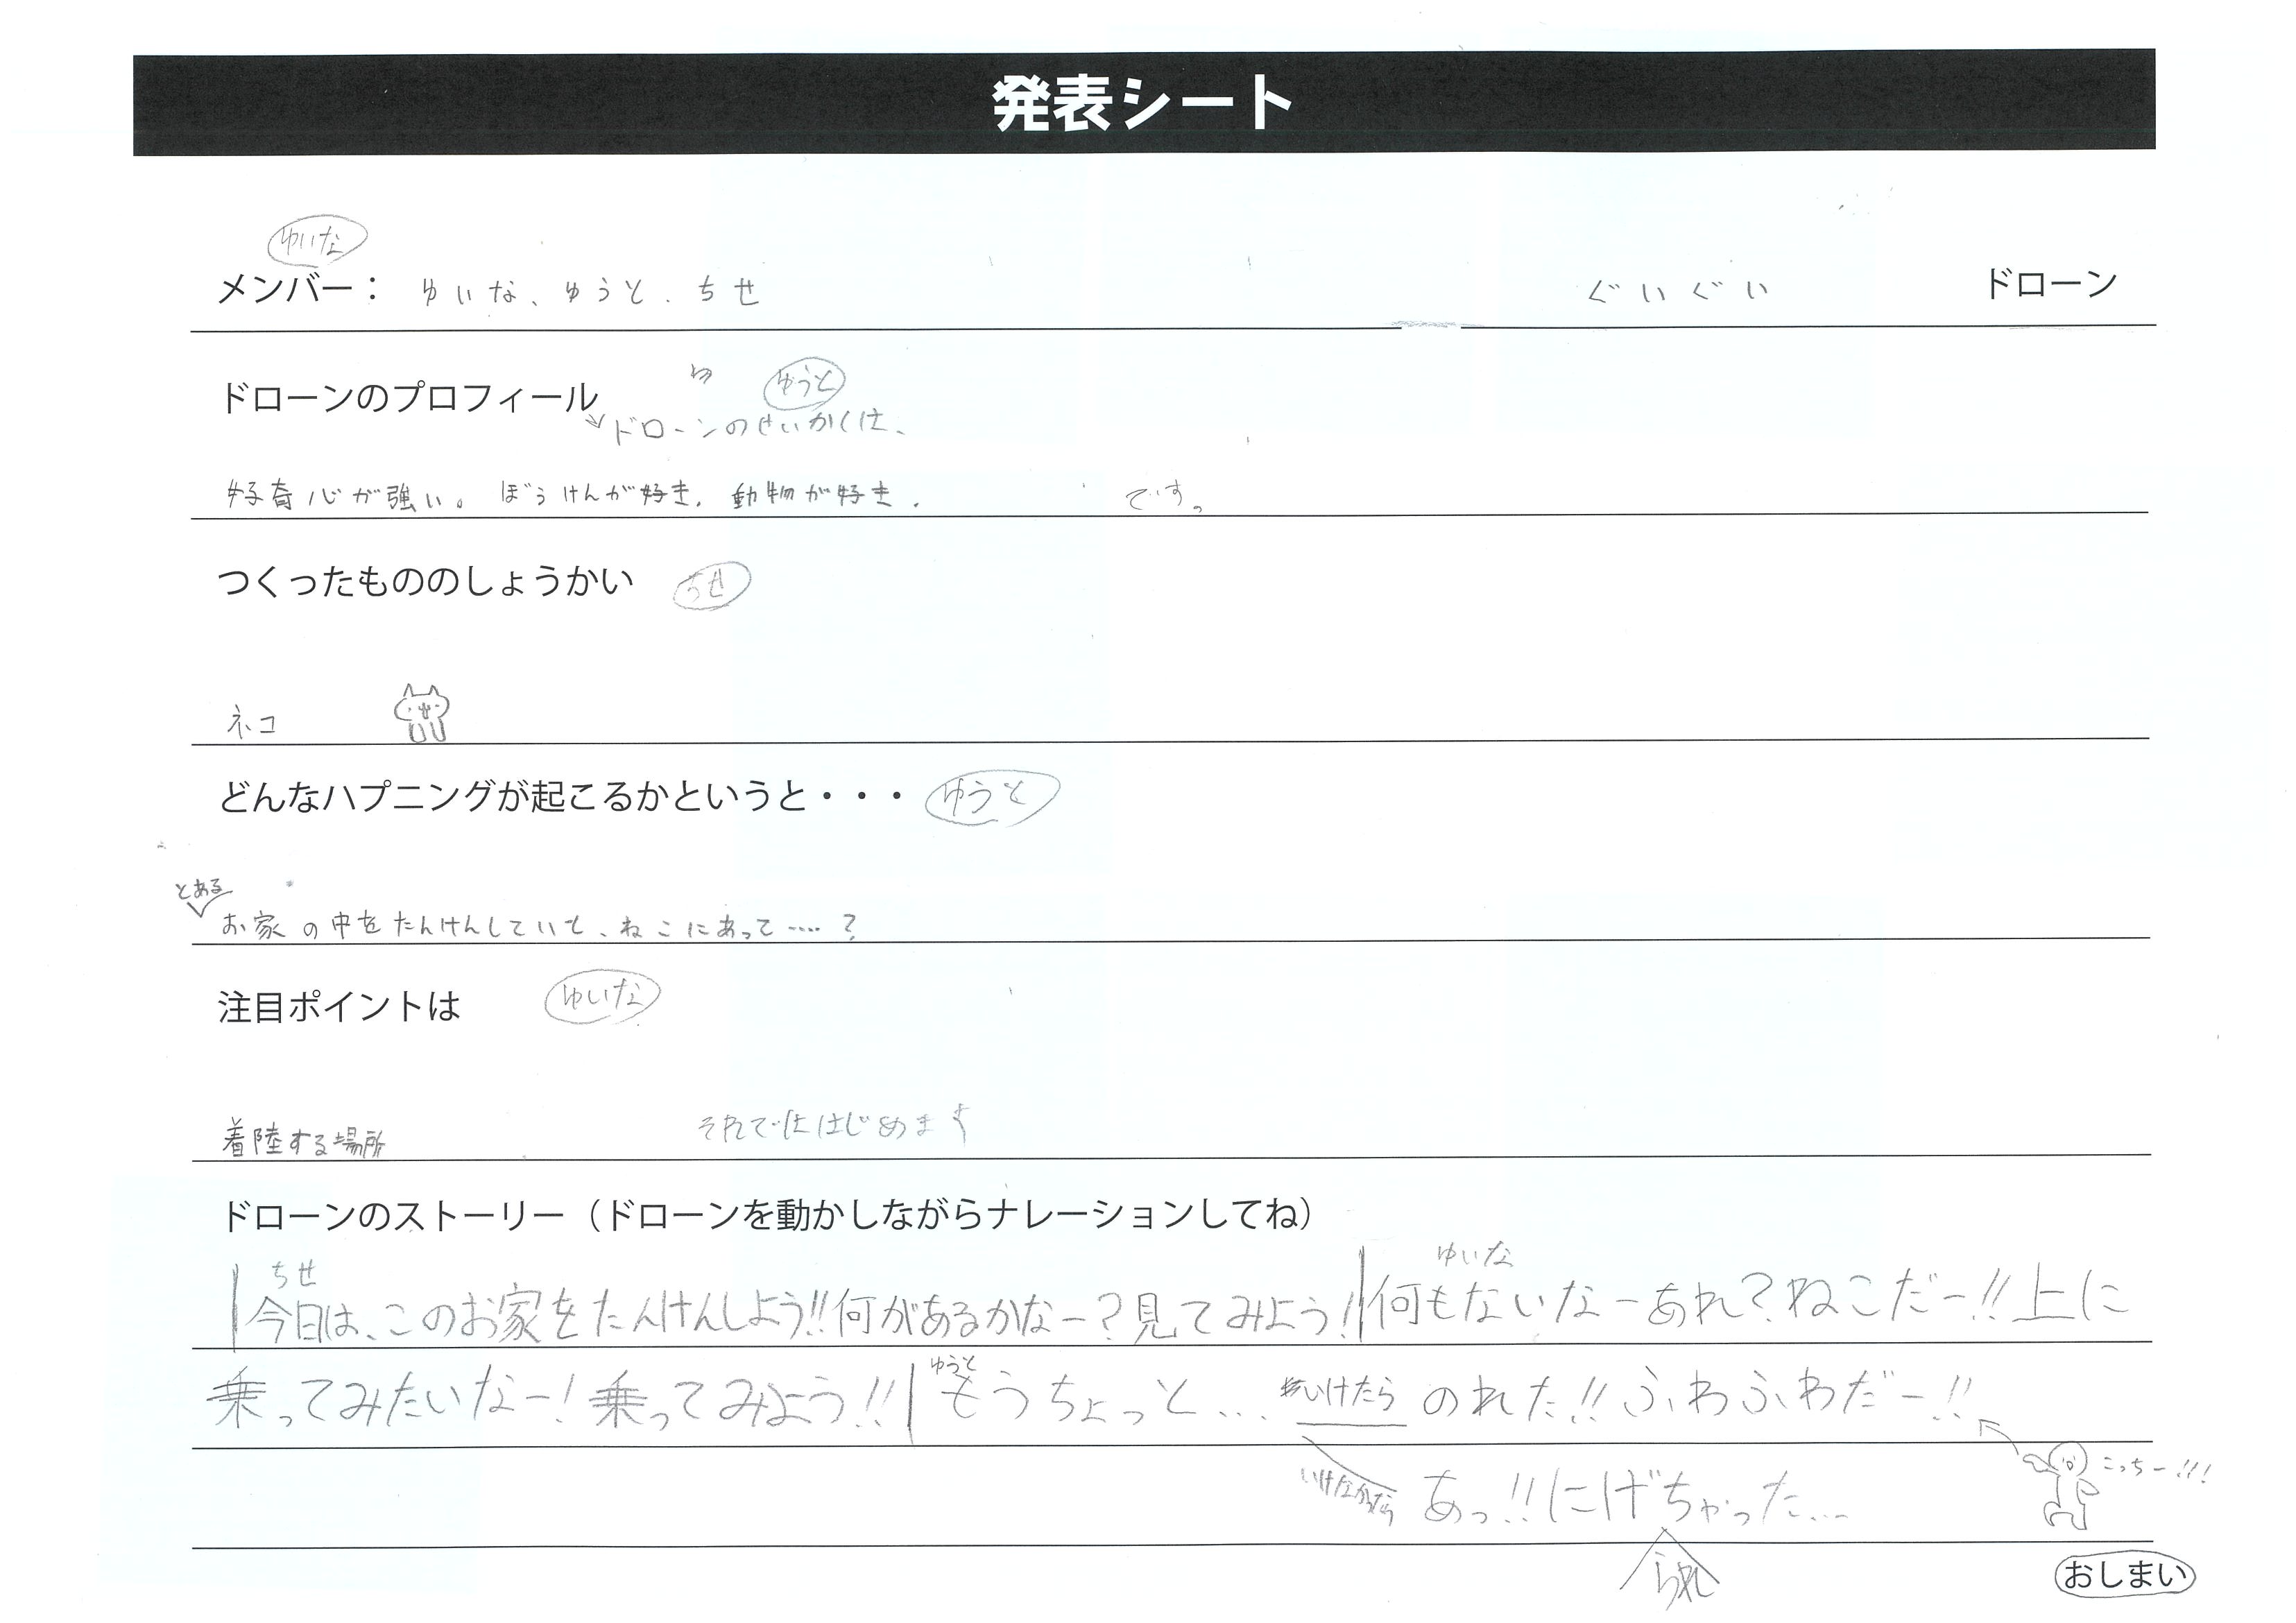 発表シート
ゆいな
メンバー： ゆいな、ゆうと、ちせ ぐいぐい ドローン
ドローンのプロフィール ゆうと
ドローンのせいかくは、
好奇心が強い。ぼうけんが好き、動物が好き、 です。
つくったもののしょうかい ちせ
ネコ
どんなハプニングが起こるかというと・・・ ゆうと
とある
お家の中をたんけんしていて、ねこにあって……？
注目ポイントは ゆいな
着陸する場所 それでははじめます
ドローンのストーリー（ドローンを動かしながらナレーションしてね）
ちせ ゆいな
今日は、このお家をたんけんしよう!!何があるかなー？見てみよう!!何もないなーあれ？ねこだー!!上に
ゆうと
乗ってみたいなー！乗ってみよう!!もうちょっと… いけたら のれた!!ふわふわだー!!
いけなかったら あっ!!にげちゃった… こっちー!!!
られ
おしまい